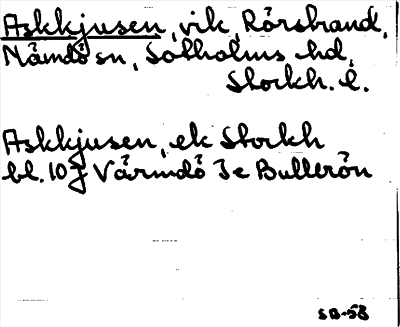 Askkjusen, vik, Rörsbrand,
Nämdö sn, Sotholms hd,
Stockh. l.
Askkjusen, ek Stockh
bl. 10 J Värmdö Je Bullerön
SB-53